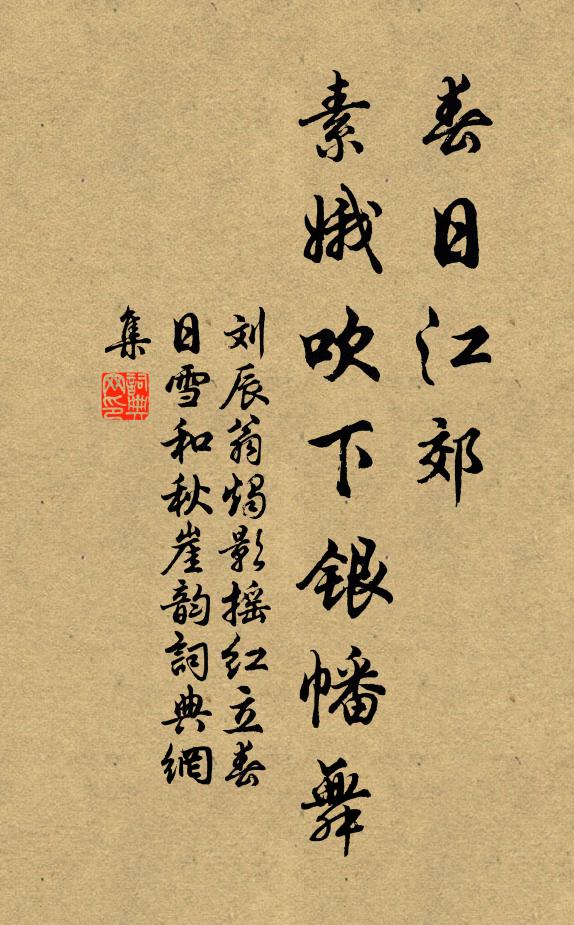 春日江郊
素娥吹下银幡舞
刘辰翁烛影摇红立春
日雪和秋崖韵词典網
集
詞典網印